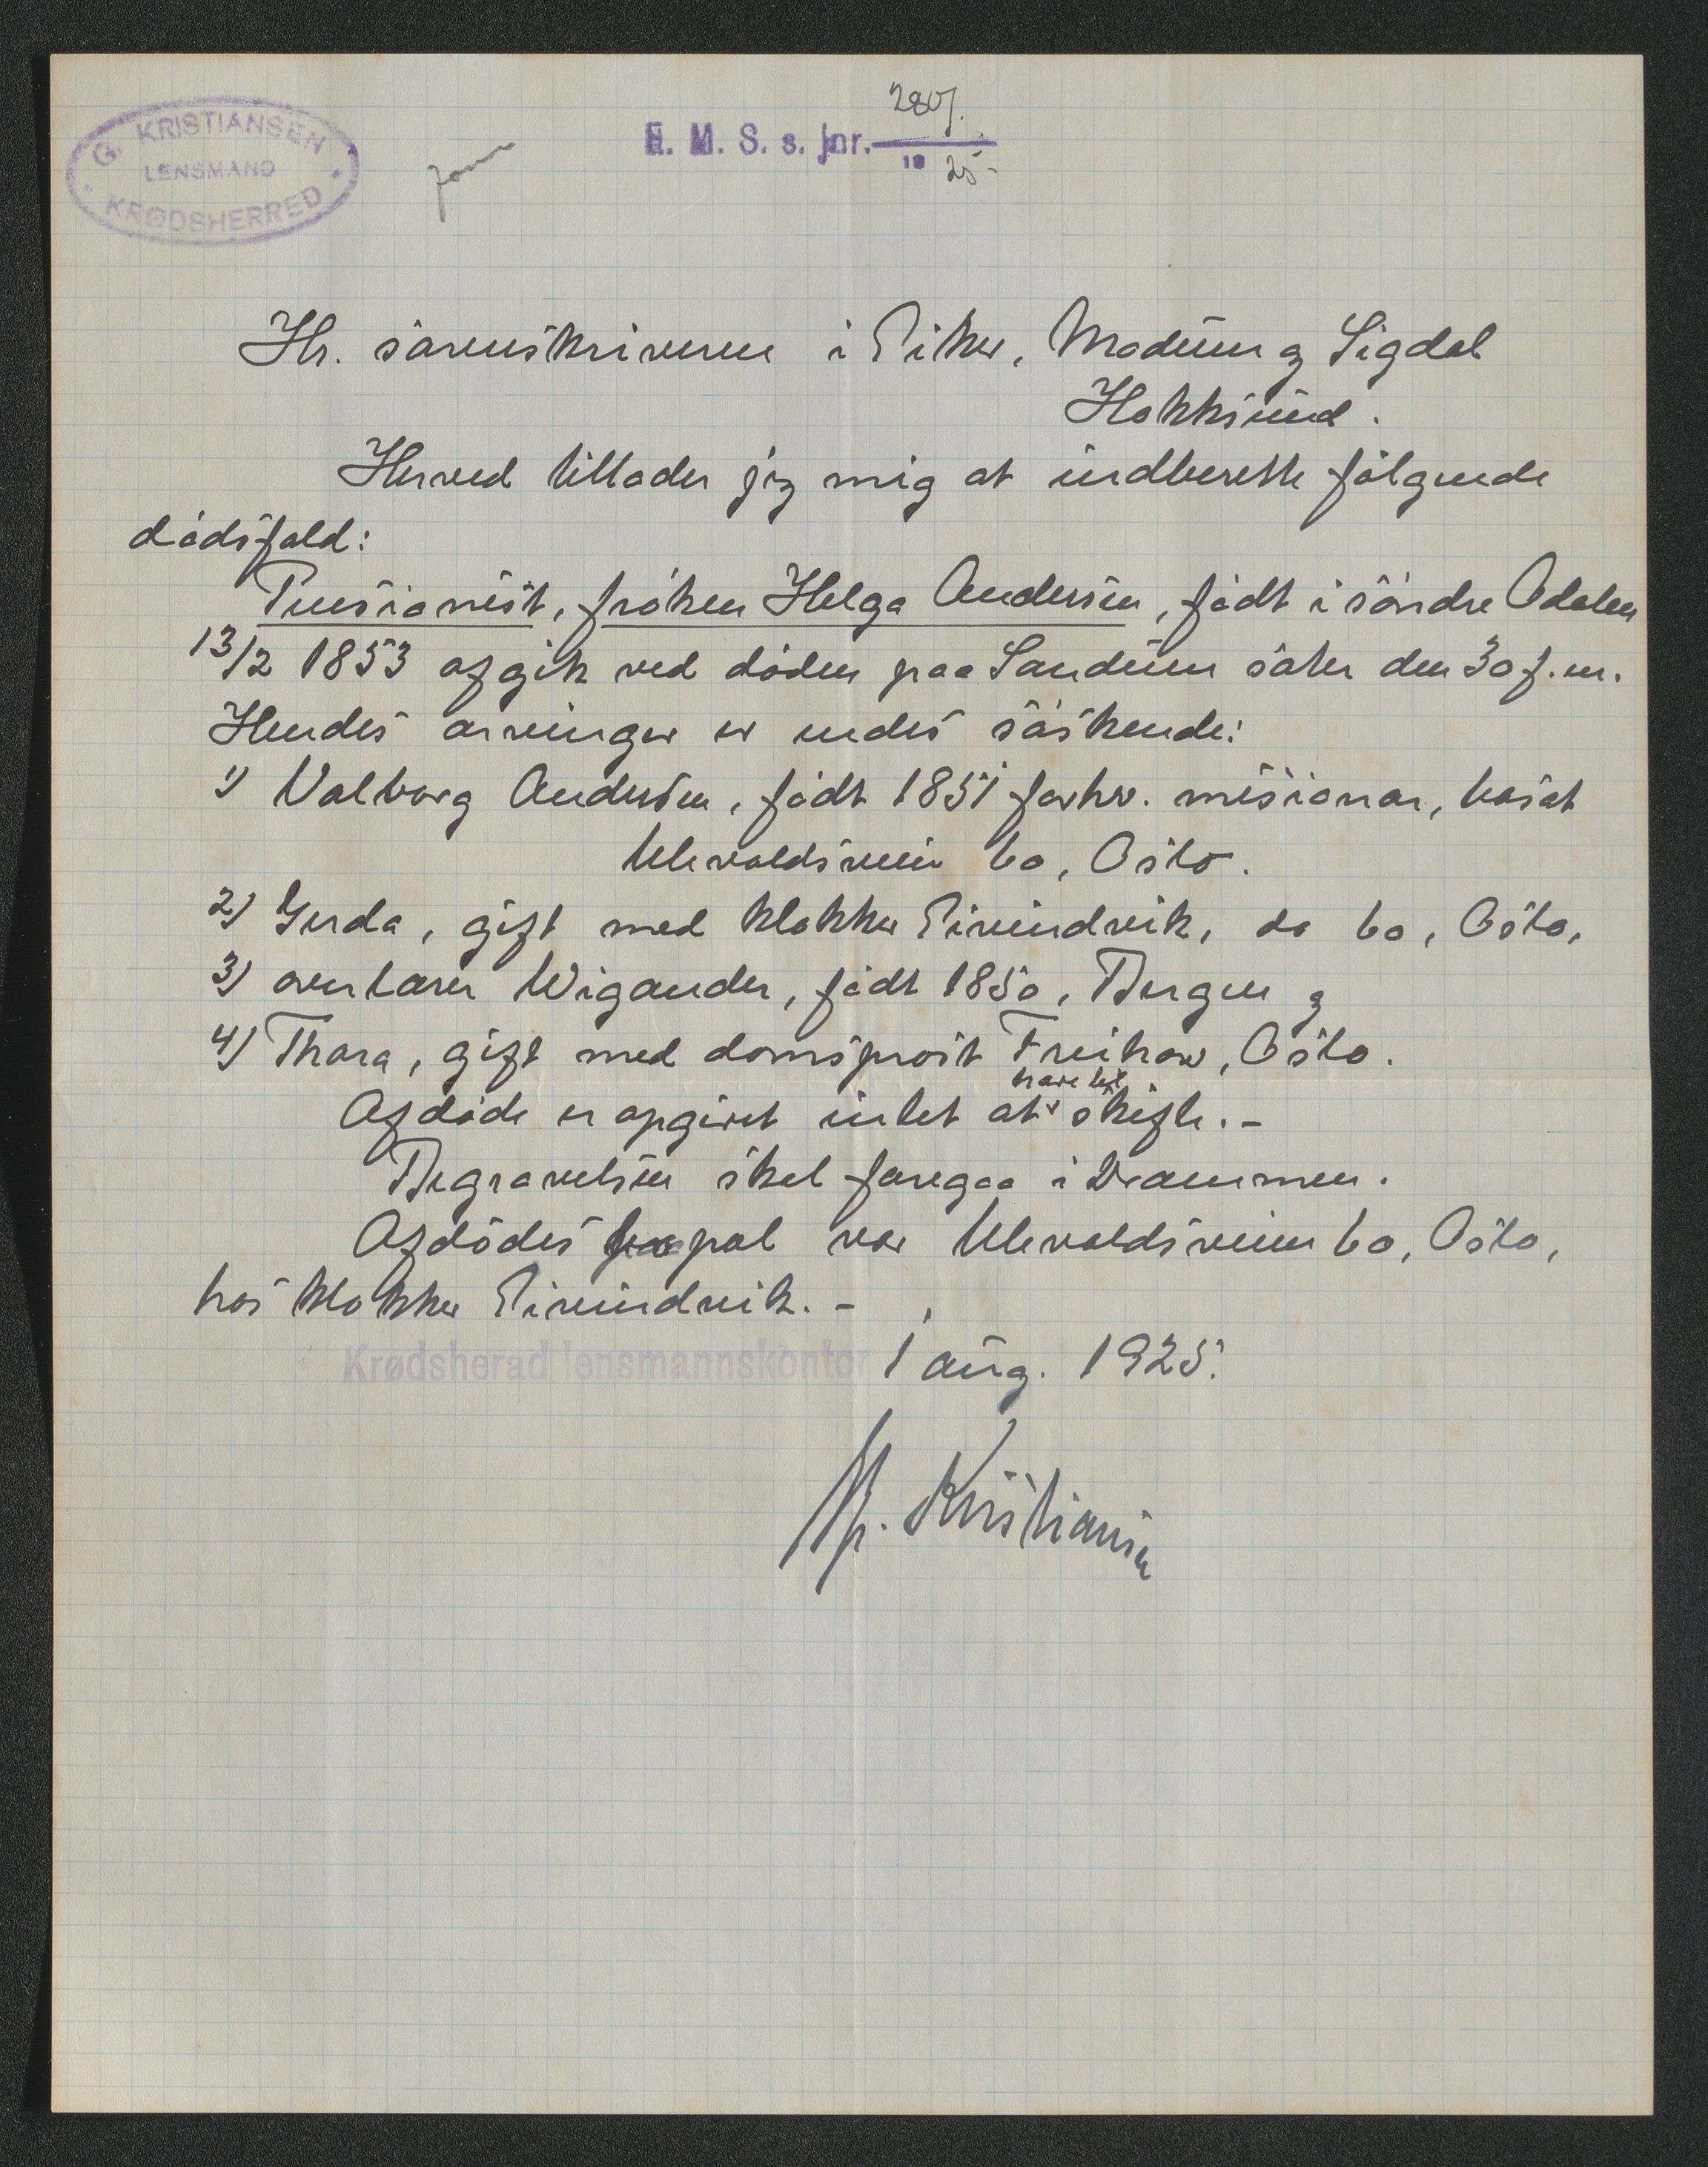 G. KRISTIANSEN
LENSMAND
KRØDSHERRED
E. M. S. s. jnr. 2807.
19 25-
Hr. sorenskriveren i Eiker, Modum og Sigdal
Hokksund.
Herved tillader jeg mig at indberette følgende
dødsfald:
Pensionist, frøken Helga Andersen, født i søndre Odalen
13/2 1853 afgik ved døden paa Sandum sæter den 30 f.m.
Hendes arvinger er endes søskende:
1) Valborg Andersen, født 1851 forhv. misionær, bosat
Ulevoldsveien 60, Oslo.
2) Gerda, gift med klokker Eivindvik, do 60, Oslo,
3) overlærer Wigander, født 1850, Bergen og
4) Thora, gift med domsprost Freihow, Oslo.
have til
Afdøde er opgivet intet at skifte.-
Begravelsen skal foregaa i Drammen.
Afdødes pal var Ulevoldsveien 60, Oslo,
hos klokker Eivindvik. -
Krødsherad lensmannskontor 1 aug. 1925.
G. Kristiansen